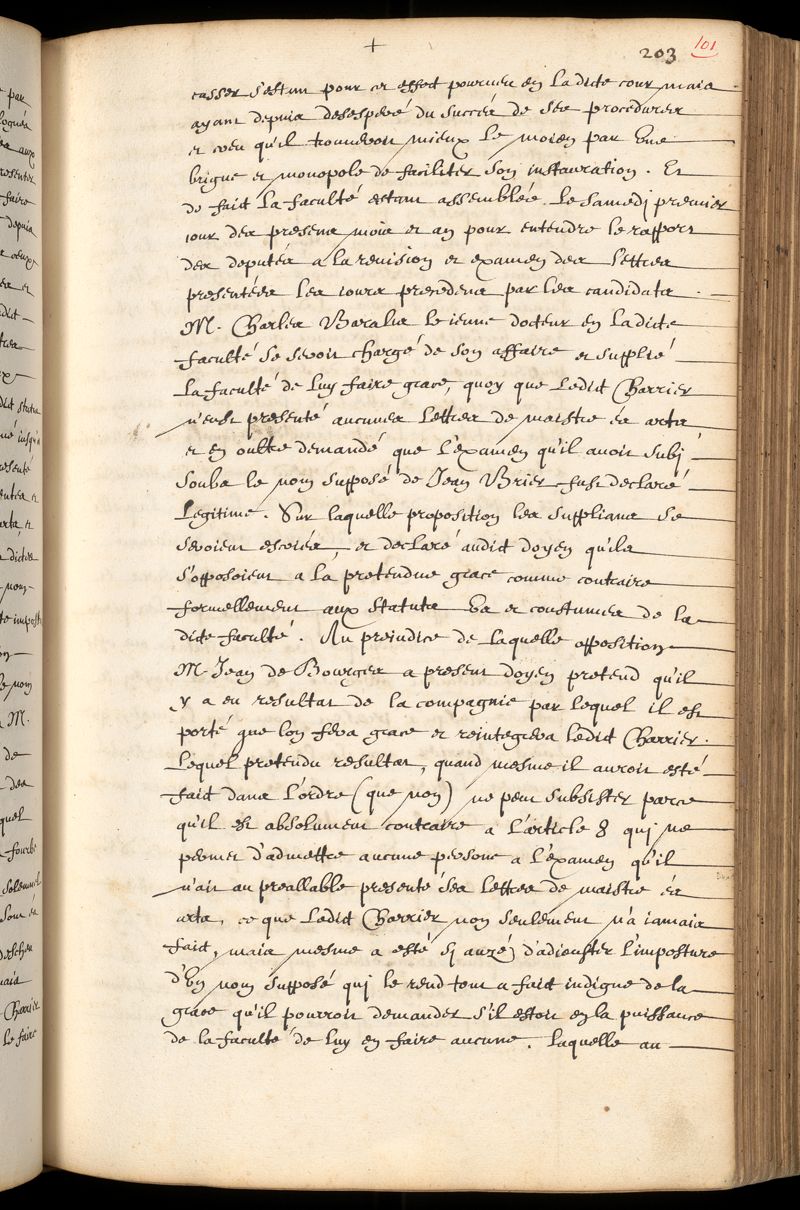 +
203 101
casser s'estant pour cet effect pourveu en ladite cour mais
ayant depuis desesperé du succés de ses procedures
et creu qu'il trouveroit mieux le moien par une
brigue et monopole de faciliter son instauration. Et
de faict la faculté estant assemblée le samedj premier
iour des presens mois et an pour entendre le rapport
des deputés a la revision et examen des lettres
presentées les iours precedens par les candidats.
M. Charles Baralis le ieune docteur en ladicte
faculté se seroit chargé de son affaire et supplié
la faculté de luy faire grace, quoy que ledict Charrier
n'eust presenté aucunes lettres de maistre és arts
et en oultre demandé que l'examen qu'il avoit subj
soubs le nom supposé de Jean Brier fust declaré
legitime. Sur laquelle proposition les supplians se
seroient escriés, et declaré audict doyen qu'ils
s'opposoient a la pretendue grace comme contraire
formellement aux statuts us et coustumes de la
dicte faculté. Au preiudice de laquelle opposition
M. Jean de Bourges a present doyen pretend qu'il
y a eu resultat de la compagnie par lequel il est
porté que lon fera grace et reintegrera ledict Charrier.
Lequel pretendu resultat, quand mesme il auroit esté
faict dans l'ordre (que non) ne peut subsister parce
qu'il est absolument contraire a l'article 8 quj ne
permet d'admettre aucune persone a l'examen qu'il
n'ait au preallable presenté ses lettres de maistre és
arts, ce que ledict Charrier non seulement n'a iamais
faict, mais mesme a esté sj auzé d'adiouster l'imposture
d'un nom supposé quj le rend tout a faict indigne de la
grace qu'il pourroit demander s'il estoit en la puissance
de la faculté de luy en faire aucune. Laquelle au